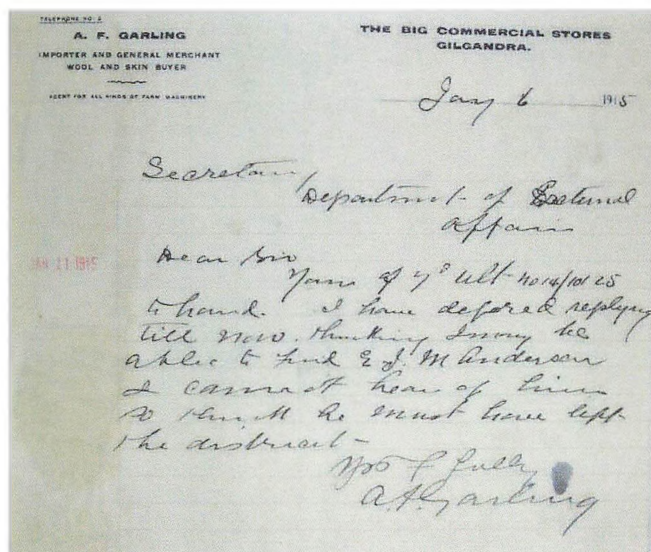 TELEPHONE NO. 2
A. F. GARLING
IMPORTER AND GENERAL MERCHANT
WOOL AND SKIN BUYER
AGENT FOR ALL KINDS OF FARM MACHINERY
THE BIG COMMERCIAL STORES
GILGANDRA.
Jany 6 1915
Secretary
Department of External
Affairs
JAN 11 1915
Dear Sir
Yours of 7th ult no 14/10125
to hand. I have defered replying
till now. thinking I may be
able to find E J. M Anderson
I cannot hear of him
so think he must have left
the district
Yrs f fully
A. F. Garling